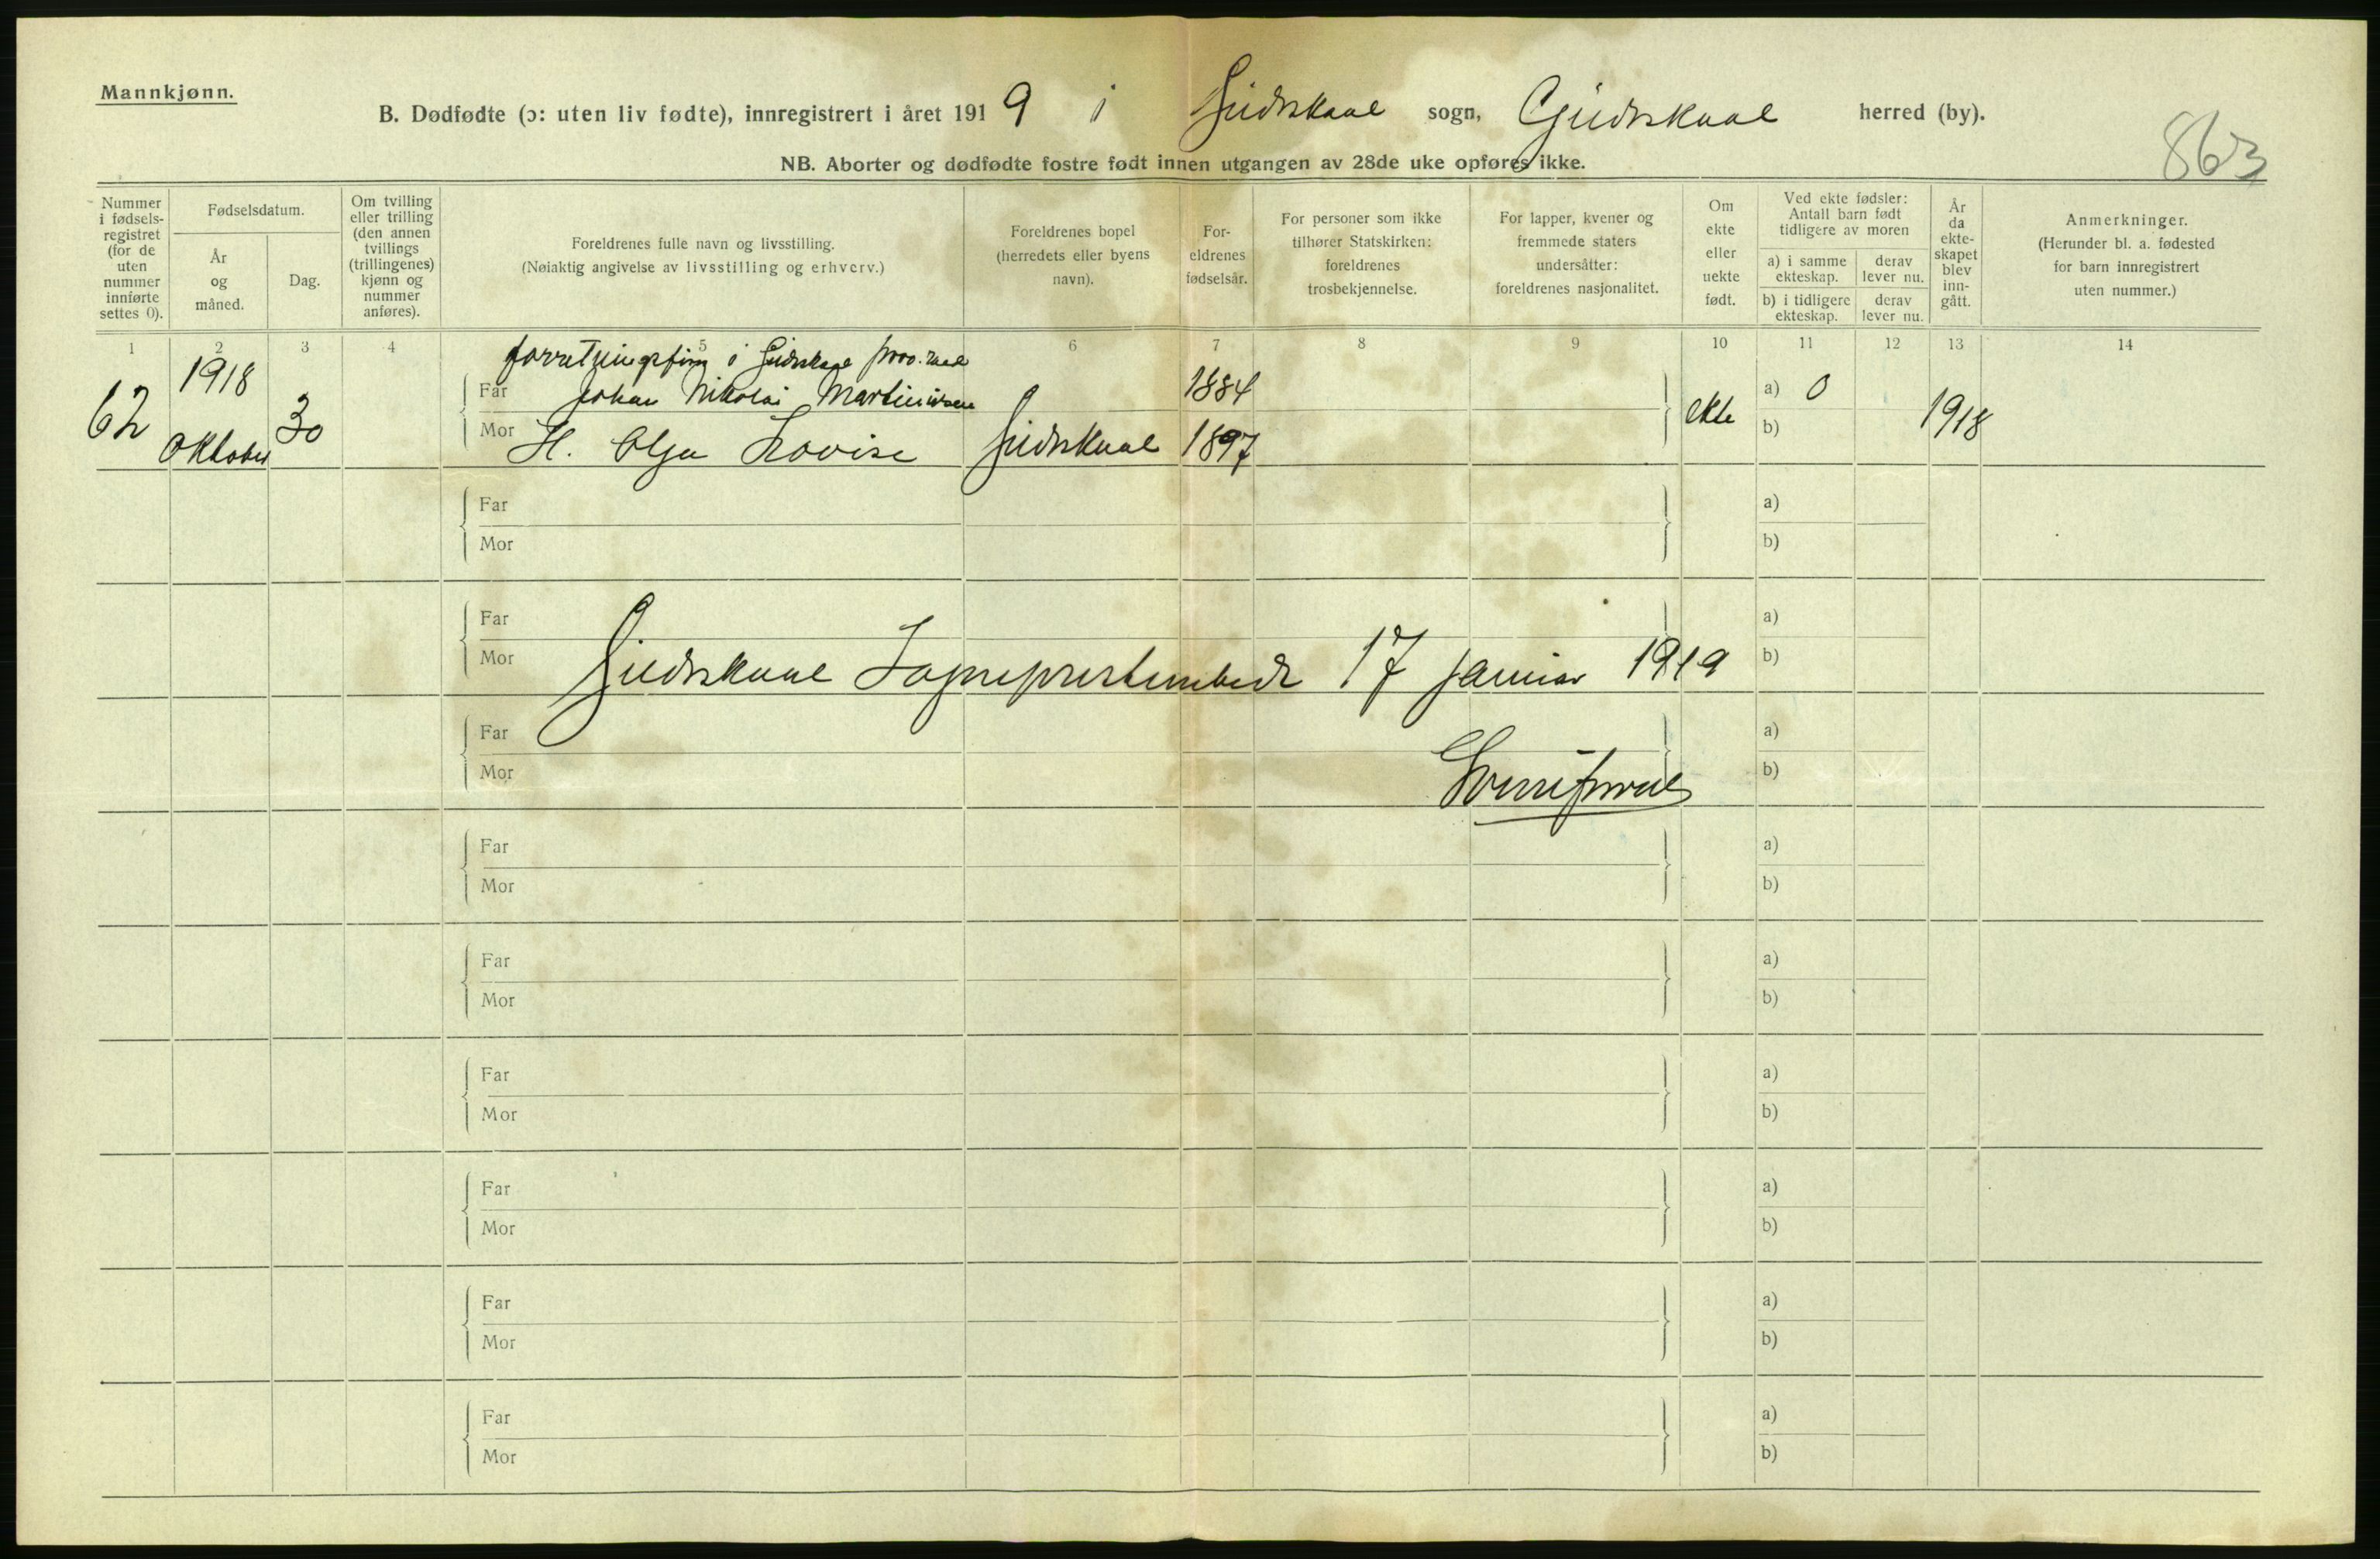 Mannkjønn.
B. Dødfødte (ɔ: uten liv fødte), innregistrert i året 1919 i Gildeskaal sogn, Gildeskaal herred (by).
863
NB. Aborter og dødfødte fostre født innen utgangen av 28de uke opføres ikke.
Nummer i fødsels-registret (for de uten nummer innførte settes 0).
Fødselsdatum.
År og måned.
Dag.
Om tvilling eller trilling (den annen tvillings (trillingenes) kjønn og nummer anføres).
Foreldrenes fulle navn og livsstilling.
(Nøiaktig angivelse av livsstilling og erhverv.)
Foreldrenes bopel (herredets eller byens navn).
For-eldrenes fødselsår.
For personer som ikke tilhører Statskirken: foreldrenes trosbekjennelse.
For lapper, kvener og fremmede staters undersåtter: foreldrenes nasjonalitet.
Om ekte eller uekte født.
Ved ekte fødsler: Antall barn født tidligere av moren
a) i samme ekteskap.
derav lever nu.
b) i tidligere ekteskap.
derav lever nu.
År da ekte-skapet blev inn-gått.
Anmerkninger.
(Herunder bl. a. fødested for barn innregistrert uten nummer.)
1 2 3 4 5 6 7 8 9 10 11 12 13 14
62 1918 Oktober 30
i Gildeskaal
Far Johan Nikolai Martinussen 1884
Mor H. Olga Lovise Gildeskaal 1897
ekte a) 0 b) 1918
Far a)
Mor b)
Far a)
Mor b)
Gildeskaal Sogneprestembede 17 januar 1919
Far a)
Mor b)
Far a)
Mor b)
Far a)
Mor b)
Far a)
Mor b)
Far a)
Mor b)
Far a)
Mor b)
Far a)
Mor b)